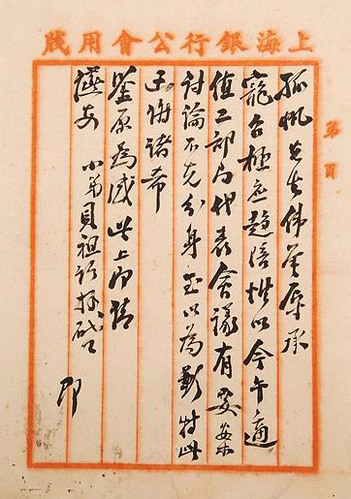 上海銀行公會用牋
第 頁
孤帆先生偉鑒辱承
寵召極應趨陪惟以今午適
值二部與代表會議有要案
討論不克分身至以為歉特此
佈諸希
鑒原為感此上即請
安
小弟貝祖詒拜啟
即